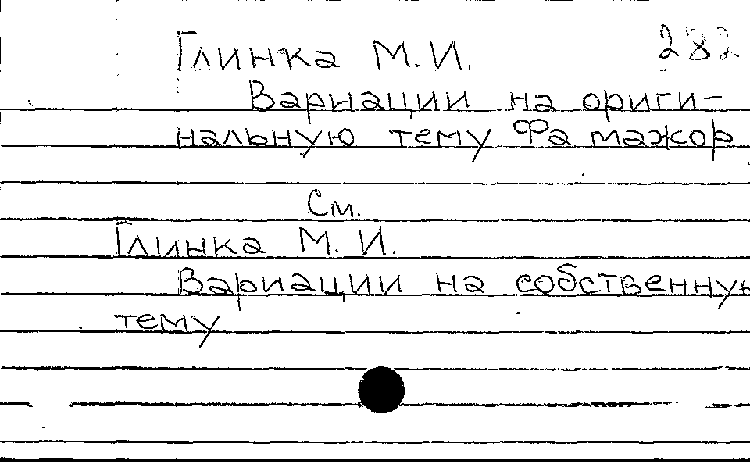 Глинка М.И. 282
Вариации на ориги-
нальную тему Фа мажор
См.
Глинка М. И.
Вариации на собственную
тему